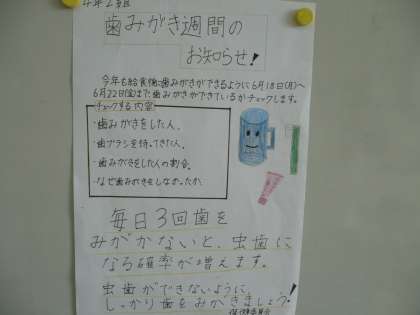 4年2組
歯みがき週間の
お知らせ!
今年も給食後に歯みがきができるように6月18日(月)〜
6月22日(金)まで歯みがきができているかチェックします。
チェックする内容
・歯みがきをした人。
・歯ブラシを持ってきた人。
・歯みがきをした人の割合。
・なぜ歯みがきをしなかったか。
毎日3回歯を
みがかないと、虫歯に
なる確率が増えます。
虫歯ができないように、
しっかり歯をみがきましょう!
保健委員会